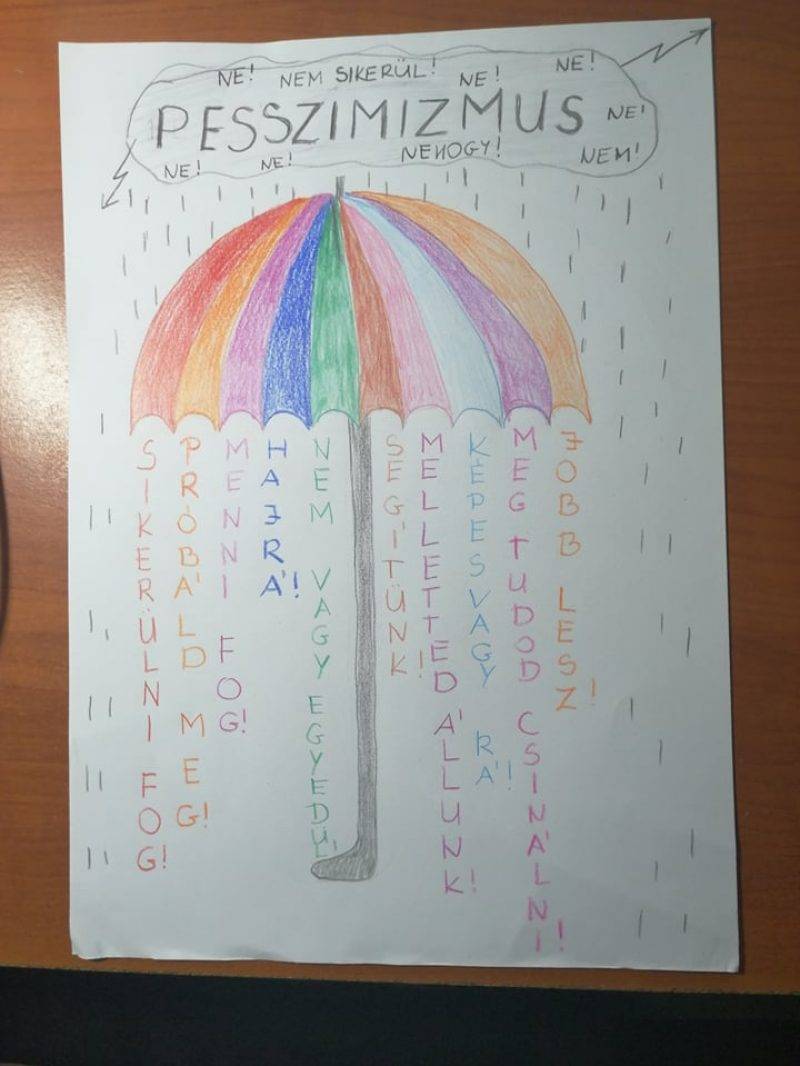 NE! NEM SIKERÜL! NE! NE!
PESSZIMIZMUS NE!
NE! NE! NEHOGY! NEM!
SIKERÜLNI FOG!
PRÓBÁLD MEG!
MENNI FOG!
HAJRÁ!
NEM VAGY EGYEDÜL!
SEGÍTÜNK!
MELLETTED ÁLLUNK!
KÉPES VAGY RÁ!
MEG TUDOD CSINÁLNI!
JOBB LESZ!